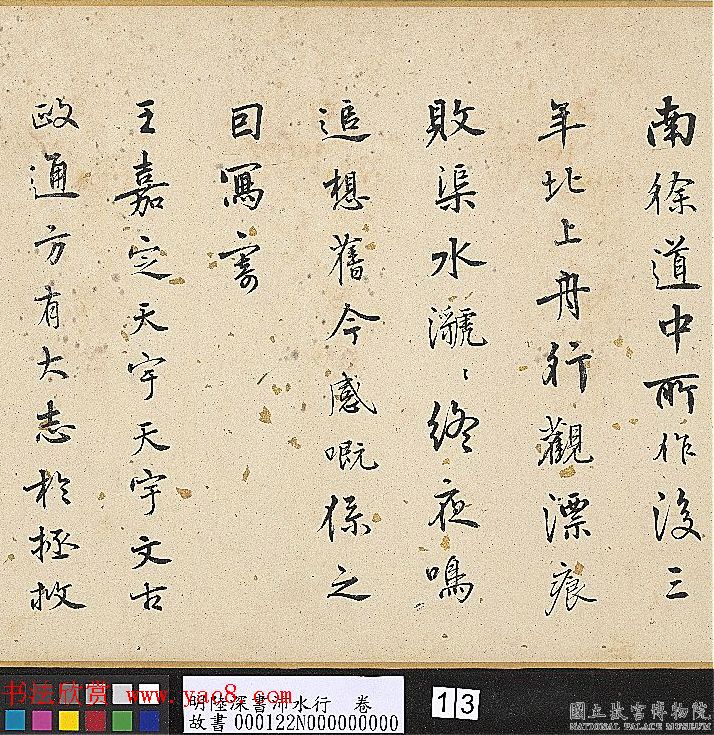 南徐道中所作後三
年北上舟行觀漂痕
敗渠水瀦〻終夜鳴
追想舊今感嘅係之
回寫寄
王嘉定天宇天宇文古
政通方有大志於拯救
书法欣赏 www.yac8.com
明陸深書沛水行 卷
故書 000122N000000000
13
國立故宮博物院
NATIONAL PALACE MUSEUM